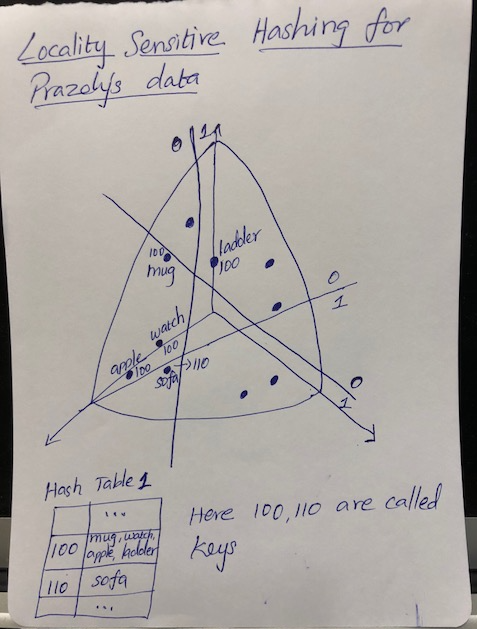 Locality Sensitive Hashing for
Prazoly's data
0 1
ladder
100
100
mug
0
1
watch
100
apple
100
→110
sofa
0
1
Hash Table 1
...
100 mug, watch, apple, ladder
110 sofa
...
Here 100, 110 are called
keys